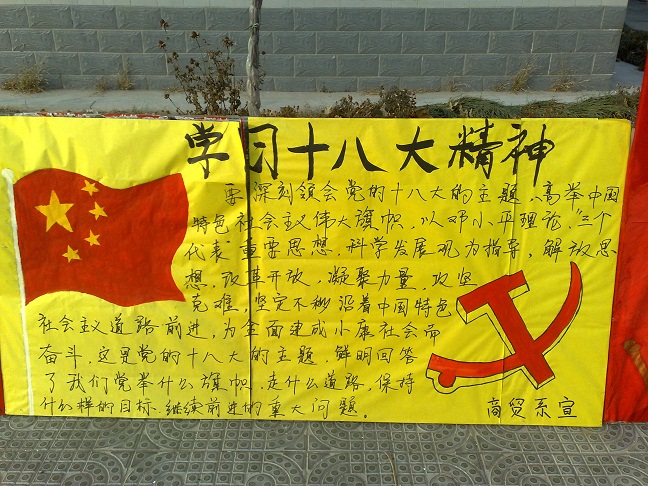 学习十八大精神
要深刻领会党的十八大的主题，高举中国
特色社会主义伟大旗帜，以邓小平理论，“三个
代表”重要思想，科学发展观为指导，解放思
想，改革开放，凝聚力量，攻坚
克难，坚定不移沿着中国特色
社会主义道路前进，为全面建成小康社会而
奋斗，这是党的十八大的主题，鲜明回答
了我们党举什么旗帜，走什么道路，保持
什么样的目标，继续前进的重大问题。
商贸系宣